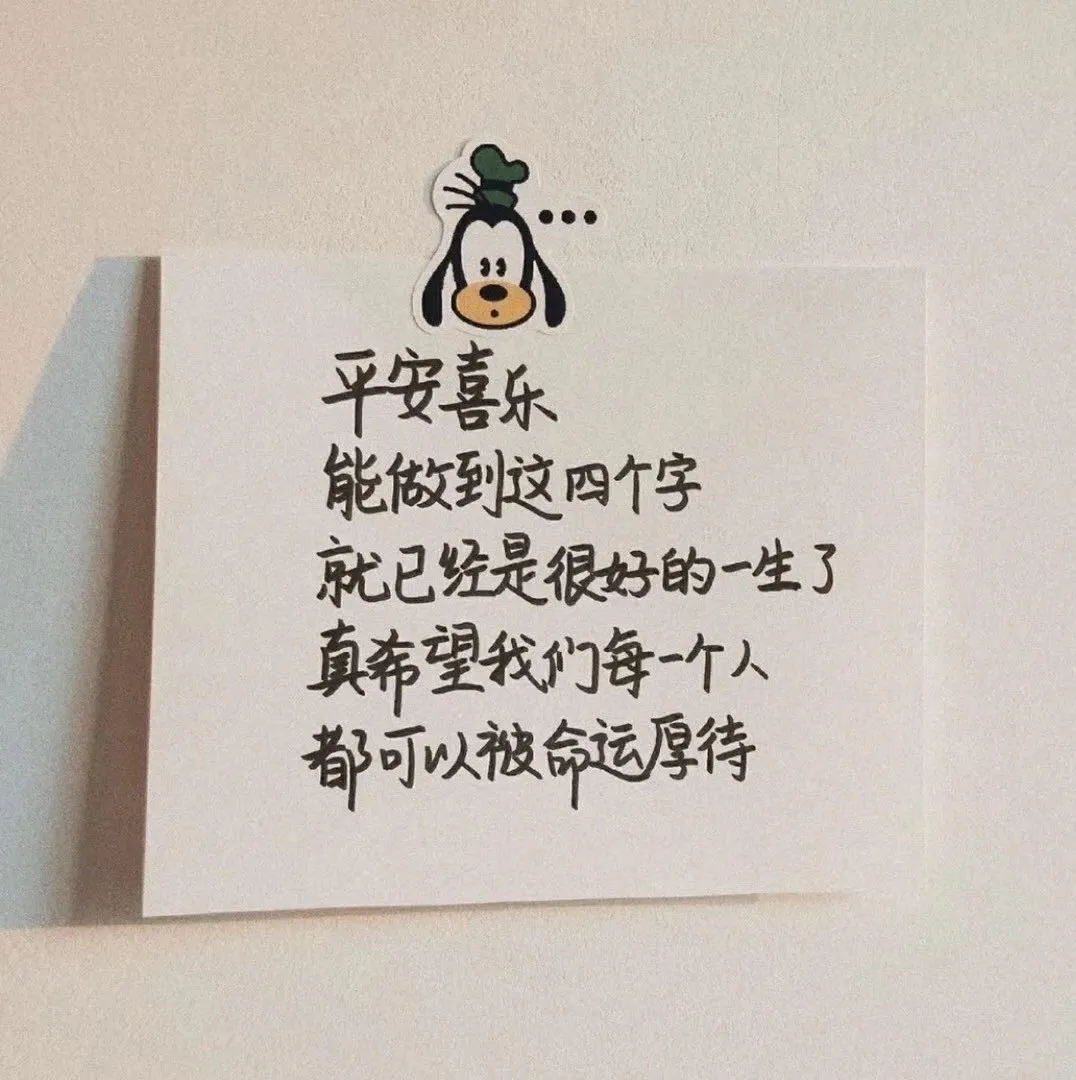 平安喜乐
能做到这四个字
就已经是很好的一生了
真希望我们每一个人
都可以被命运厚待